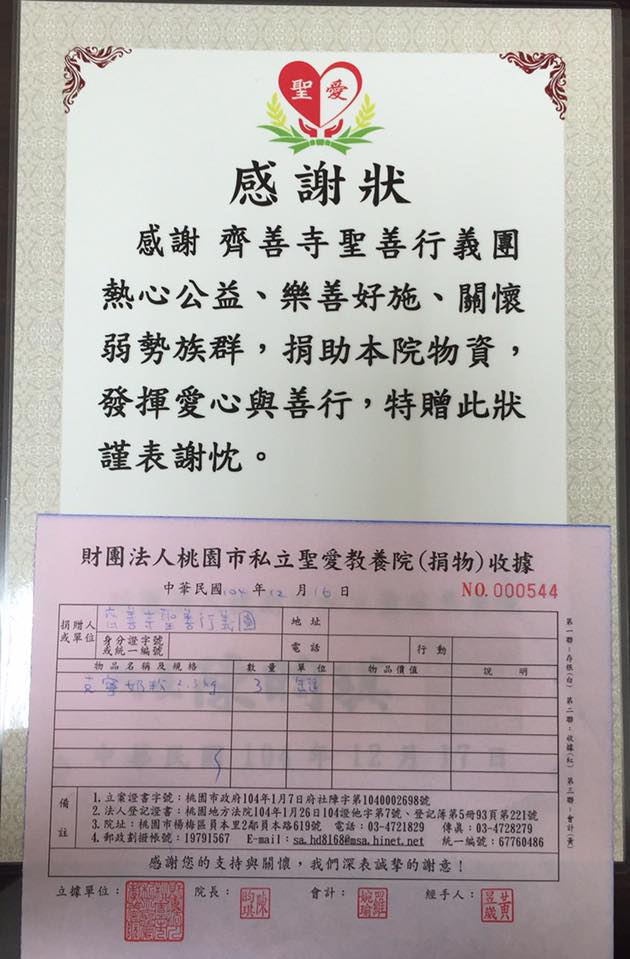 聖愛
感謝狀
感謝 齊善寺聖善行義團
熱心公益、樂善好施、關懷
弱勢族群，捐助本院物資，
發揮愛心與善行，特贈此狀
謹表謝忱。
財團法人桃園市私立聖愛教養院(捐物)收據
中華民國104年12月16日
NO.000544
捐贈人或單位 善寺聖善行義團 地址
身分證字號或統一編號 電話 行動
物品名稱及規格 數量 單位 物品價值 說明
克寧奶粉2.3kg 3 罐
第一聯：存根(白) 第二聯：收據(紅) 第三聯：會計(黃)
中華民國 104 年 12 月 17 日
備註
1.立案證書字號：桃園市政府104年1月7日府社障字第1040002698號
2.法人登記證書：桃園地方法院104年1月26日104證他字第7號、登記簿第5冊93頁第221號
3.院址：桃園市楊梅區員本里2鄰員本路619號 電話：03-4721829 傳真：03-4728279
4.郵政劃撥帳號：19791567 E-mail：sa.hd8168@msa.hinet.net 統一編號：67760486
感謝您的支持與關懷，我們深表誠摯的謝意！
立據單位： 院長： 會計： 經手人：